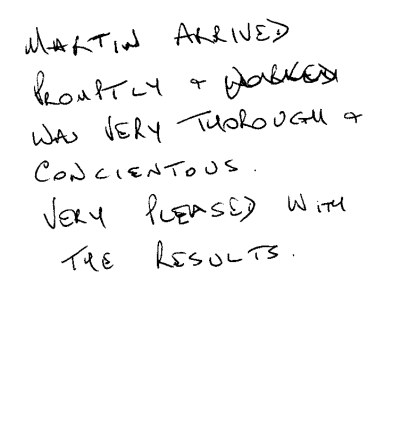 MARTIN ARRIVED
PROMPTLY + WORKED
WAS VERY THOROUGH +
CONCIENTOUS.
VERY PLEASED WITH
THE RESULTS.